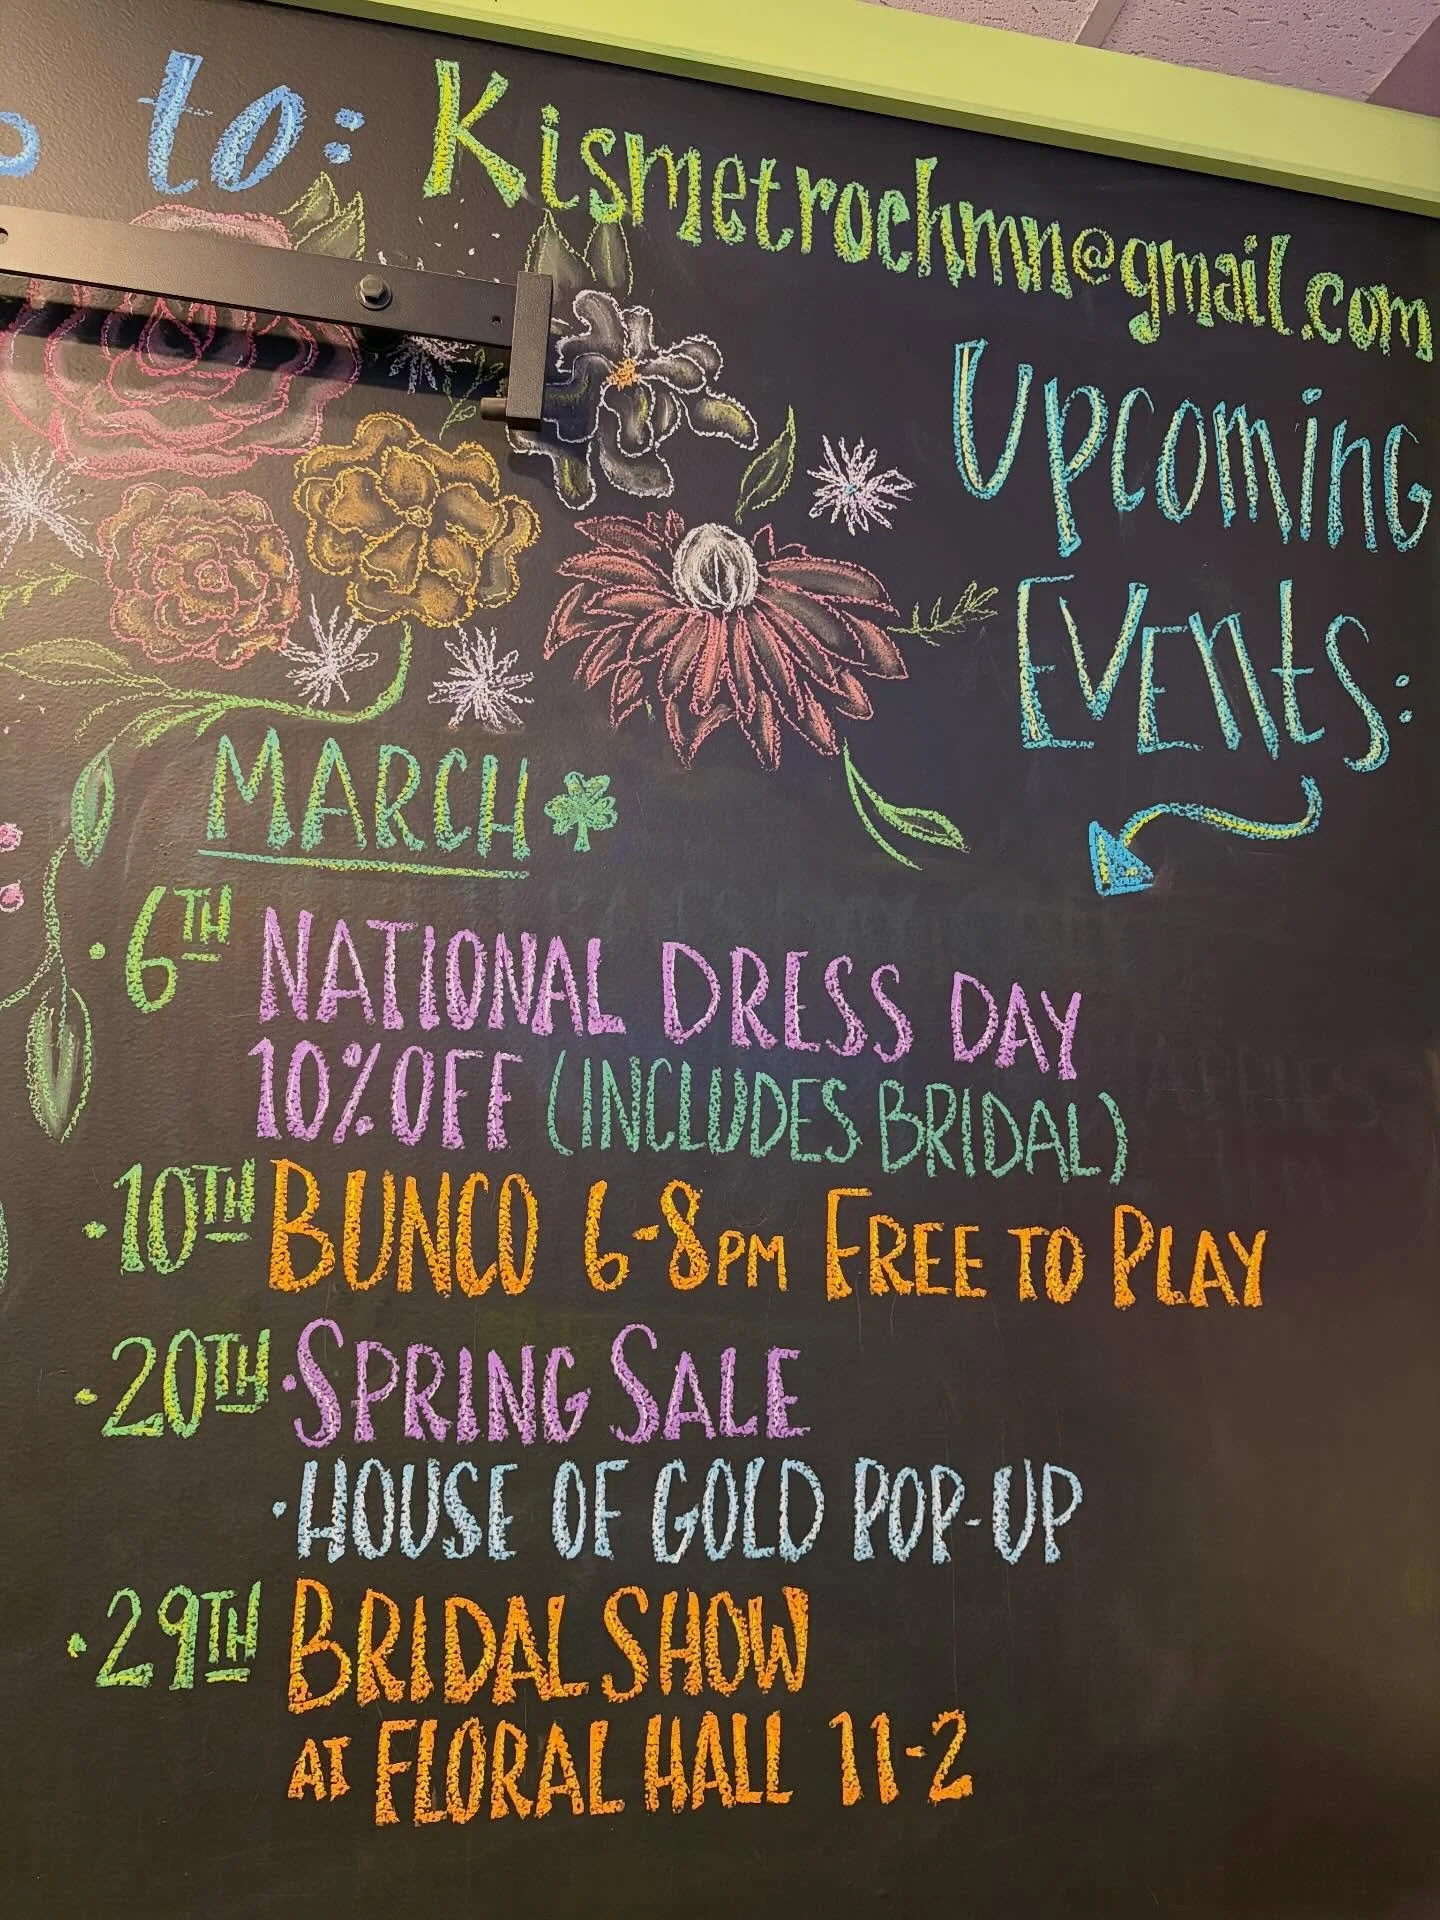 to: Kismetrochmn@gmail.com
Upcoming
Events:
MARCH
• 6TH NATIONAL DRESS DAY
10% OFF (INCLUDES BRIDAL)
• 10TH BUNCO 6-8PM FREE TO PLAY
• 20TH • SPRING SALE
• HOUSE OF GOLD POP-UP
• 29TH BRIDAL SHOW
AT FLORAL HALL 11-2